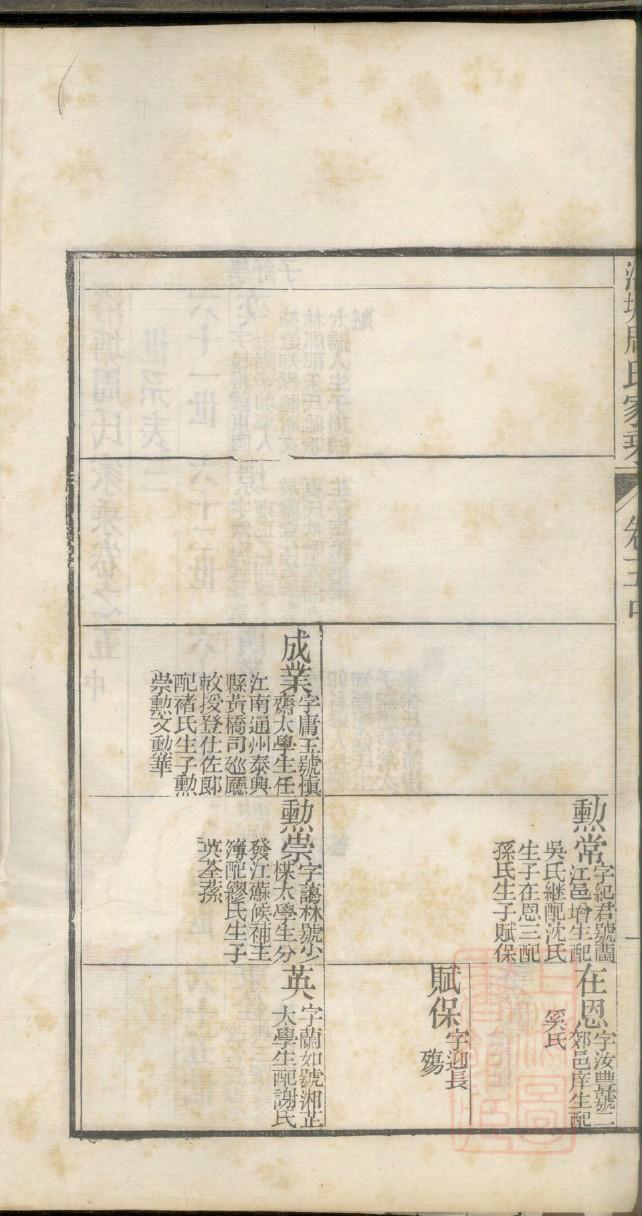 周氏家乘
卷三中
勲常
字紀君號蘭
江邑增生配
吳氏継配沈氏
生子在恩三配
孫氏生子賦保
在恩
字汝豊號二
郊邑庠生配
奚氏
賦保
字迎長
殤
成業
字庸五號慎
齋太學生任
江南通州泰興
縣黃橋司巡廳
敕授登仕佐郎
配褚氏生子勲
崇勲文勲華
勲崇
字藹林號少
楳太學生分
發江蘇候補主
簿配繆氏生子
英荃蓀
英
字蘭如號湘芷
太學生配謝氏